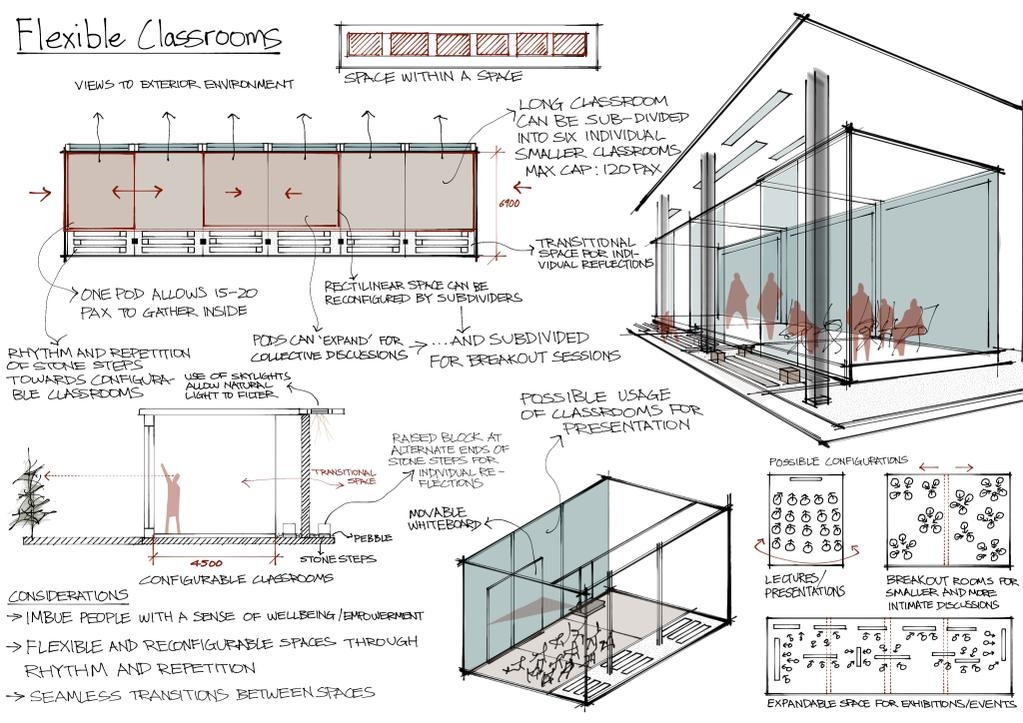 Flexible Classrooms
SPACE WITHIN A SPACE
VIEWS TO EXTERIOR ENVIRONMENT
LONG CLASSROOM
CAN BE SUB-DIVIDED
INTO SIX INDIVIDUAL
SMALLER CLASSROOMS
MAX CAP: 120 PAX
6900
TRANSITIONAL
SPACE FOR INDI-
VIDUAL REFLECTIONS
ONE POD ALLOWS 15-20
PAX TO GATHER INSIDE
RECTILINEAR SPACE CAN BE
RECONFIGURED BY SUBDIVIDERS
PODS CAN 'EXPAND' FOR
COLLECTIVE DISCUSSIONS
...AND SUBDIVIDED
FOR BREAKOUT SESSIONS
RHYTHM AND REPETITION
OF STONE STEPS
TOWARDS CONFIGURA-
BLE CLASSROOMS
USE OF SKYLIGHTS
ALLOW NATURAL
LIGHT TO FILTER
TRANSITIONAL
SPACE
RAISED BLOCK AT
ALTERNATE ENDS OF
STONE STEPS FOR
INDIVIDUAL RE-
FLECTIONS
PEBBLE
STONE STEPS
4500
CONFIGURABLE CLASSROOMS
POSSIBLE USAGE
OF CLASSROOMS FOR
PRESENTATION
MOVABLE
WHITEBOARD
POSSIBLE CONFIGURATIONS
LECTURES/
PRESENTATIONS
BREAKOUT ROOMS FOR
SMALLER AND MORE
INTIMATE DISCUSSIONS
EXPANDABLE SPACE FOR EXHIBITIONS/EVENTS
CONSIDERATIONS
→ IMBUE PEOPLE WITH A SENSE OF WELLBEING/EMPOWERMENT
→ FLEXIBLE AND RECONFIGURABLE SPACES THROUGH
RHYTHM AND REPETITION
→ SEAMLESS TRANSITIONS BETWEEN SPACES